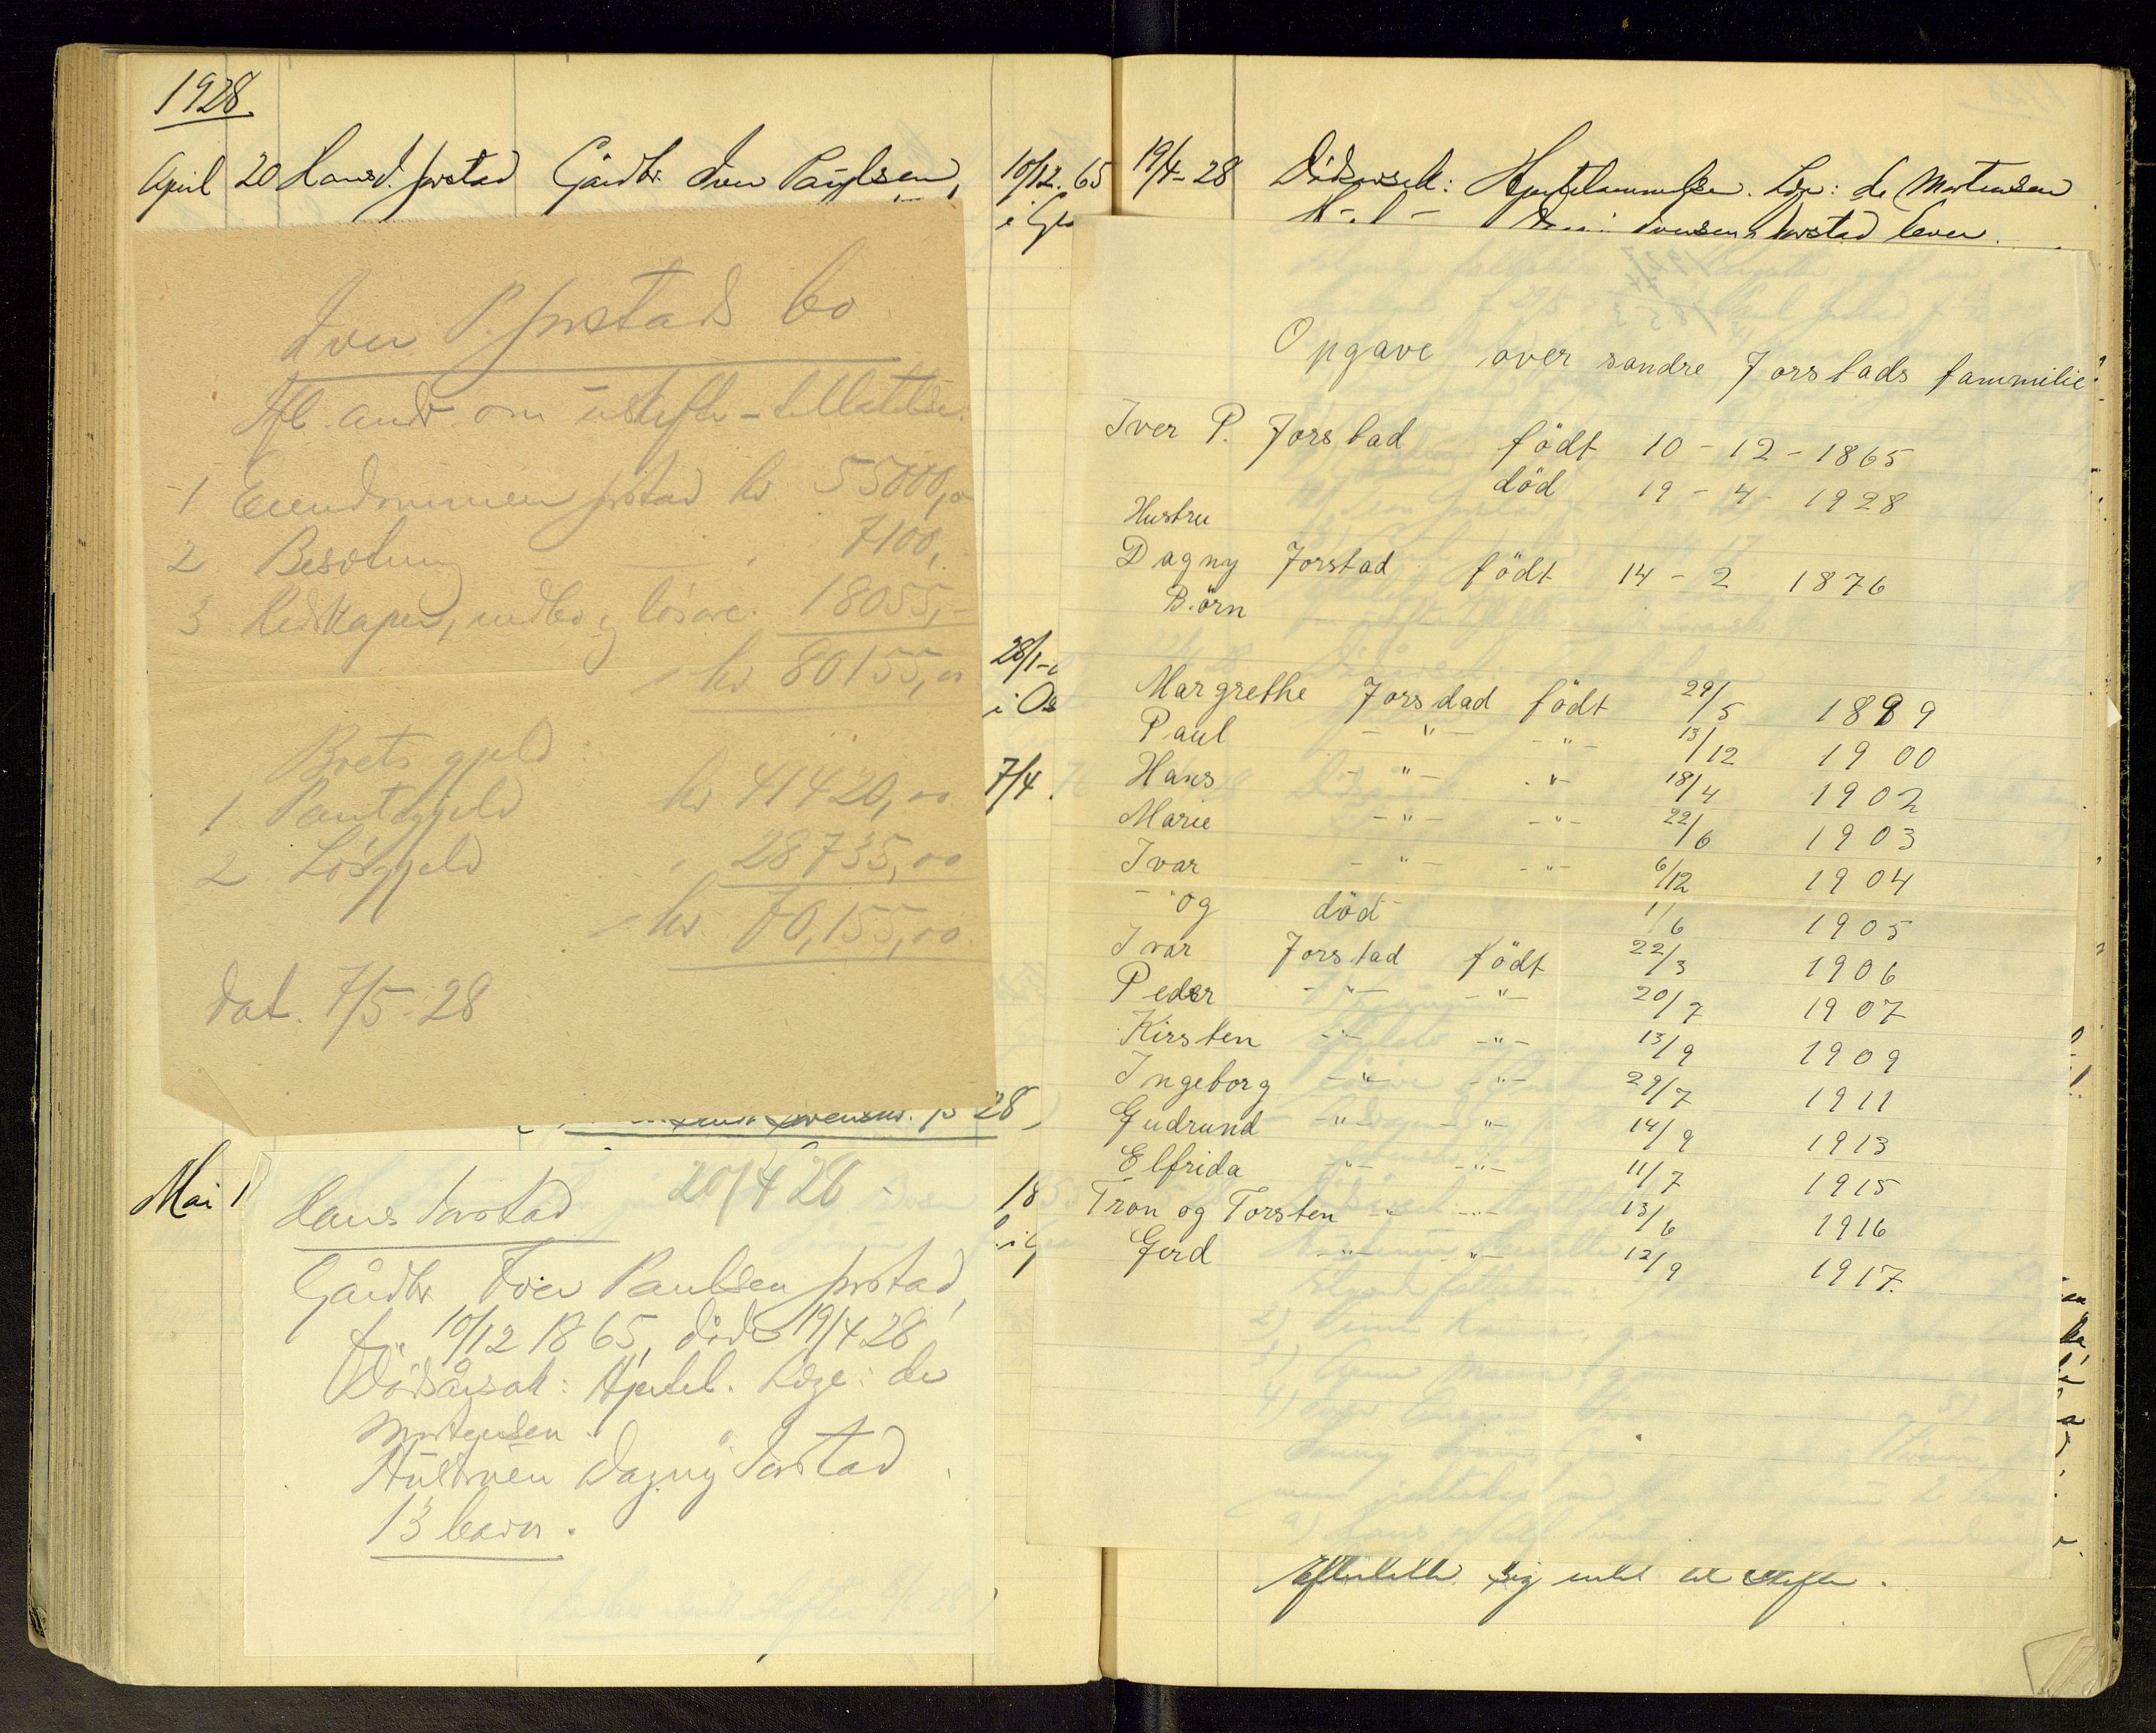 1928
April 20 Hans J. Jorstad Gårdbr. Iver Paulsen,
10/12. 65
19/4-28 Dödsårsak: Hjertelammelse. Læge: dr Mortensen
Jorstad lever.
Iver P. Jorstads bo
Ifl. andr. om uskifte-tillatelse.
1 Eiendommen Jorstad kr. 55000,00
2 Besetning 7100,
3 Redskaper, indbo og lösøre. 18055,-
kr 80155,00
Boets gjeld
1 Pantegjeld kr 41420,00
2 Lösgjeld 28735,00
kr. 70,155,00
dat. 7/5-28
28)
Mai 1
Hans Jorstad 20/4 28 -
Gårdbr Iver Paulsen Jorstad,
f. 10/12 1865, död 19/4 28
Dödsårsak: Hjertel. Læge: dr
Mortensen.
Hustruen Dagny Jorstad
13 barn.
28/1-
i Os
7/4.
18
Opgave over søndre Jorstads fammilie
Iver P. Jorstad födt 10-12-1865
död 19-4-1928
Hustru
Dagny Jorstad födt 14-2 1876
Börn
Margrethe Jorsdad födt 29/5 1899
Paul -"- -"- 13/12 1900
Hans -"- -"- 18/4 1902
Marie -"- -"- 22/6 1903
Ivar -"- -"- 6/12 1904
-"- og död 1/6 1905
Ivar Jorstad födt 22/3 1906
Peder -"- -"- 20/7 1907
Kirsten -"- -"- 13/9 1909
Ingeborg -"- -"- 29/7 1911
Gudrund -"- -"- 14/9 1913
Elfrida -"- -"- 11/7 1915
Tron og Torsten -"- -"- 13/6 1916
Gerd -"- -"- 12/9 1917.
Efterlatte sig intet at skifte.